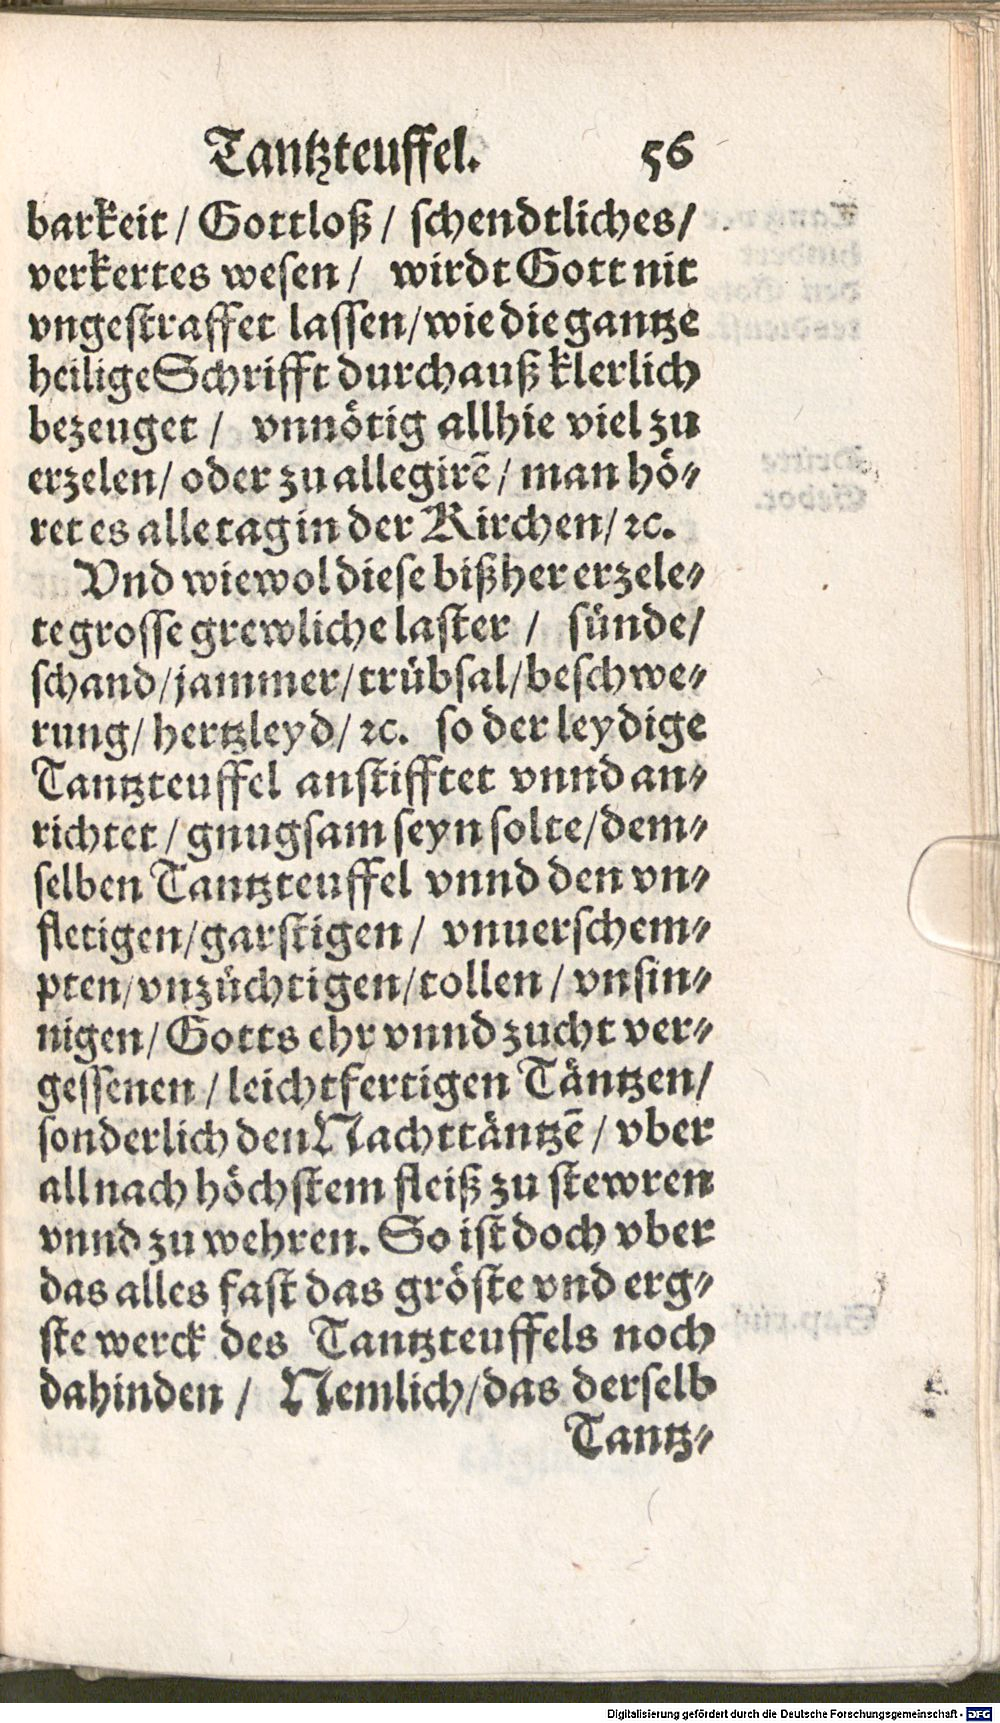 Tantzteuffel. 56
barkeit / Gottloß / schendtliches /
verkertes wesen / wirdt Gott nit
vngestraffet lassen / wie die gantze
heilige Schrifft durchauß klerlich
bezeuget / vnnötig allhie viel zu
erzelen / oder zu allegirẽ / man hö⸗
ret es alle tag in der Kirchen / ꝛc.
Vnd wiewol diese bißher erzele⸗
te grosse grewliche laster / sünde /
schand / jammer / trübsal / beschwe⸗
rung / hertzleyd / ꝛc. so der leydige
Tantzteuffel anstifftet vnnd an⸗
richtet / gnugsam seyn solte / dem⸗
selben Tantzteuffel vnnd den vn⸗
fletigen / garstigen / vnuerschem⸗
pten / vnzüchtigen / tollen / vnsin⸗
nigen / Gotts ehr vnnd zucht ver⸗
gessenen / leichtfertigen Täntzen /
sonderlich den Nachttäntzẽ / vber
all nach höchstem fleiß zu stewren
vnnd zu wehren. So ist doch vber
das alles fast das gröste vnd erg⸗
ste werck des Tantzteuffels noch
dahinden / Nemlich / das derselb
Tantz⸗
Digitalisierung gefördert durch die Deutsche Forschungsgemeinschaft - DFG